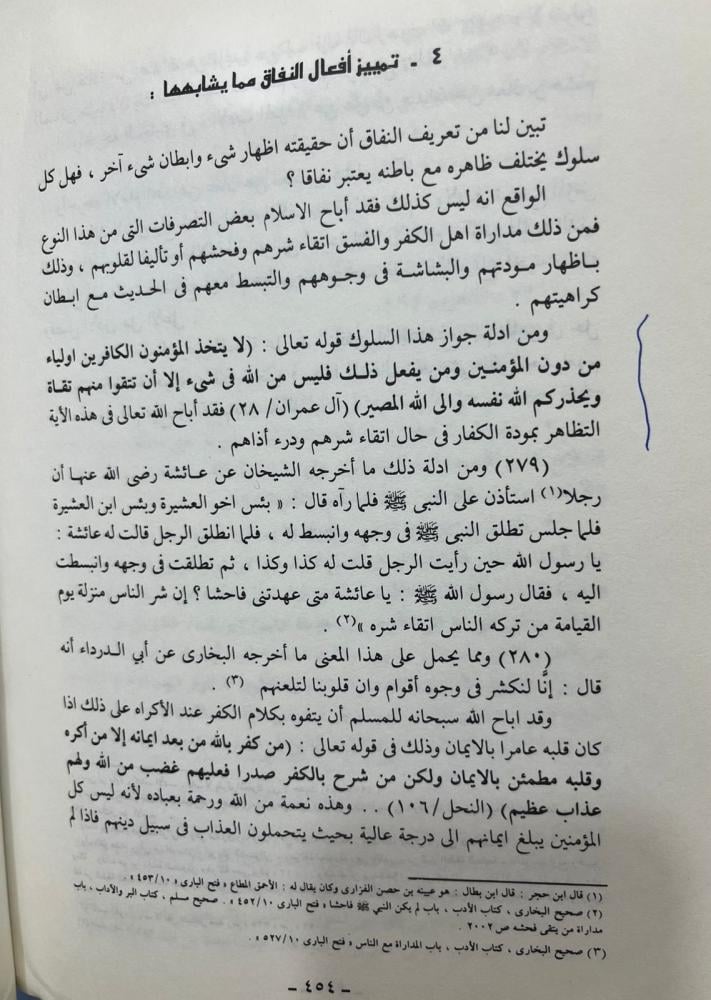 ٤ ـ تمييز أفعال النفاق مما يشابهها :
تبين لنا من تعريف النفاق أن حقيقته اظهار شىء وابطان شىء آخر ، فهل كل
سلوك يختلف ظاهره مع باطنه يعتبر نفاقا ؟
الواقع انه ليس كذلك فقد أباح الاسلام بعض التصرفات التى من هذا النوع
فمن ذلك مداراة اهل الكفر والفسق اتقاء شرهم وفحشهم أو تأليفا لقلوبهم ، وذلك
باظهار مودتهم والبشاشة فى وجوههم والتبسط معهم فى الحديث مع ابطان
كراهيتهم .
ومن ادلة جواز هذا السلوك قوله تعالى : (لا يتخذ المؤمنون الكافرين اولياء
من دون المؤمنين ومن يفعل ذلك فليس من الله فى شىء إلا أن تتقوا منهم تقاة
ويحذركم الله نفسه والى الله المصير) (آل عمران/ ٢٨) فقد أباح الله تعالى فى هذه الأية
التظاهر بمودة الكفار فى حال اتقاء شرهم ودرء أذاهم .
(٢٧٩) ومن ادلة ذلك ما أخرجه الشيخان عن عائشة رضى الله عنها أن
رجلا(١) استأذن على النبى ﷺ فلما رآه قال : « بئس اخو العشيرة وبئس ابن العشيرة
فلما جلس تطلق النبى ﷺ فى وجهه وانبسط له ، فلما انطلق الرجل قالت له عائشة :
يا رسول الله حين رأيت الرجل قلت له كذا وكذا ، ثم تطلقت فى وجهه وانبسطت
اليه ، فقال رسول الله ﷺ : يا عائشة متى عهدتنى فاحشا ؟ إن شر الناس منزلة يوم
القيامة من تركه الناس اتقاء شره »(٢) .
(٢٨٠) ومما يحمل على هذا المعنى ما أخرجه البخارى عن أبي الدرداء أنه
قال : إنَّا لنكشر فى وجوه أقوام وان قلوبنا لتلعنهم (٣) .
وقد اباح الله سبحانه للمسلم أن يتفوه بكلام الكفر عند الأكراه على ذلك اذا
كان قلبه عامرا بالايمان وذلك فى قوله تعالى : (من كفر بالله من بعد ايمانه إلا من أكره
وقلبه مطمئن بالايمان ولكن من شرح بالكفر صدرا فعليهم غضب من الله ولهم
عذاب عظيم) (النحل/١٠٦) . . وهذه نعمة من الله ورحمة بعباده لأنه ليس كل
المؤمنين يبلغ ايمانهم الى درجة عالية بحيث يتحملون العذاب فى سبيل دينهم فاذا لم
(١) قال ابن حجر : قال ابن بطال : هو عيينه بن حصن الفزارى وكان يقال له : الأحمق المطاع « فتح البارى » ٤٥٣/١٠ .
(٢) صحيح البخارى ، كتاب الأدب ، باب لم يكن النبي ﷺ فاحشا « فتح البارى ٤٥٢/١٠ » . صحيح مسلم ، كتاب البر والأداب ، باب
مداراة من يتقى فحشه ص ٢٠٠٢ .
(٣) صحيح البخارى ، كتاب الأدب ، باب المداراة مع الناس « فتح البارى ٥٢٧/١٠ » .
ـ ٤٥٤ ـ